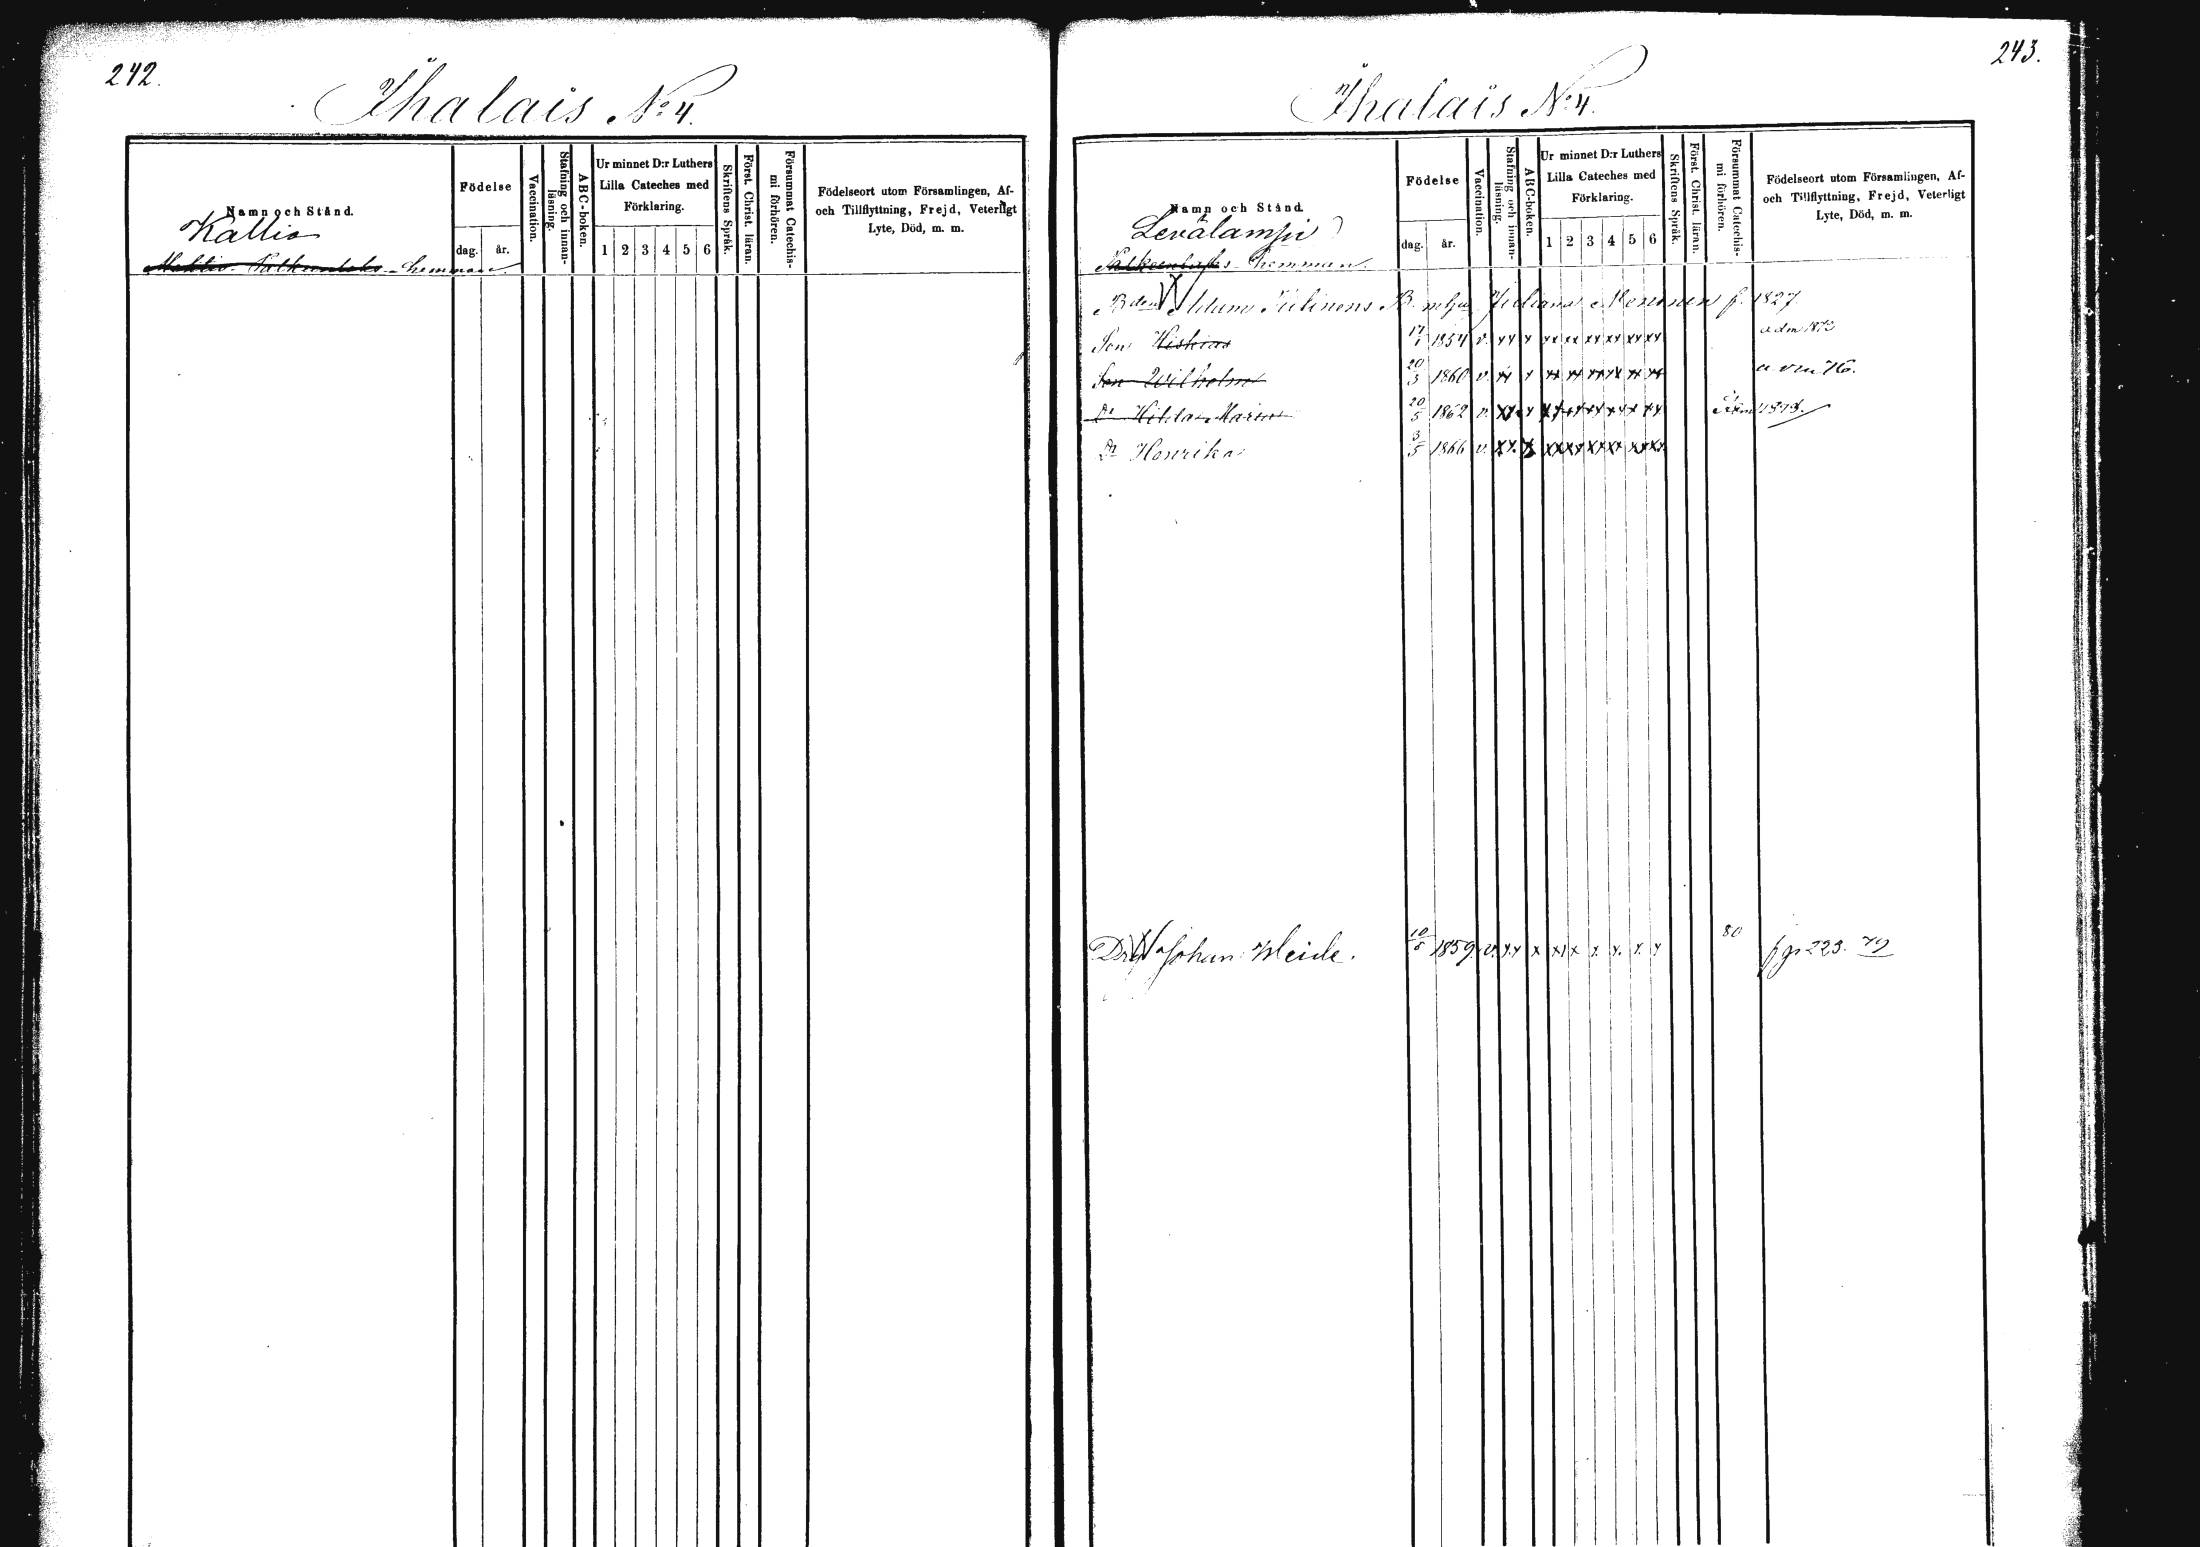 242.
Ihalais No 4.
Namn och Stånd.
Kallio
hemman
Födelse
dag.
år.
Vaccination.
Stafning och innan-
läsning.
ABC-boken.
Ur minnet D:r Luthers
Lilla Cateches med
Förklaring.
1 2 3 4 5 6
Skriftens Språk.
Först. Christ. läran.
Försummat Catechis-
mi förhören.
Födelseort utom Församlingen, Af-
och Tillflyttning, Frejd, Veterligt
Lyte, Död, m. m.
243.
Ihalais No 4.
Namn och Stånd.
Levälampi
hemman.
Födelse
dag.
år.
Vaccination.
Stafning och innan-
läsning.
ABC-boken.
Ur minnet D:r Luthers
Lilla Cateches med
Förklaring.
1 2 3 4 5 6
Skriftens Språk.
Först. Christ. läran.
Försummat Catechis-
mi förhören.
Födelseort utom Församlingen, Af-
och Tillflyttning, Frejd, Veterligt
Lyte, Död, m. m.
Juliana f. 1827
Son Hiskias 1854 v. xx x xx xx xx xx xx xx adm 1873
Son Wilhelm 20/3 1860 v. xx x xx xx xx xx xx xx
Dr Hilda Maria 20/5 1862 v. xx x xx xx xx xx xx xx
Dr Henrika 3/5 1866 v. xx x xx xx xx xx xx xx
Johan 1859 v. xx x xx x x x x x 80 f p 223. 79